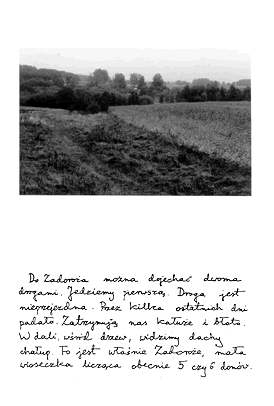 Do Zadoroża można dojechać dwoma
drogami. Jedziemy pierwszą. Droga jest
nieprzejezdna. Przez kilka ostatnich dni
padało. Zatrzymują nas kałuże i błoto.
W dali, wśród drzew, widzimy dachy
chałup. To jest właśnie Zadoroże, mała
wioseczka licząca obecnie 5 czy 6 domów.